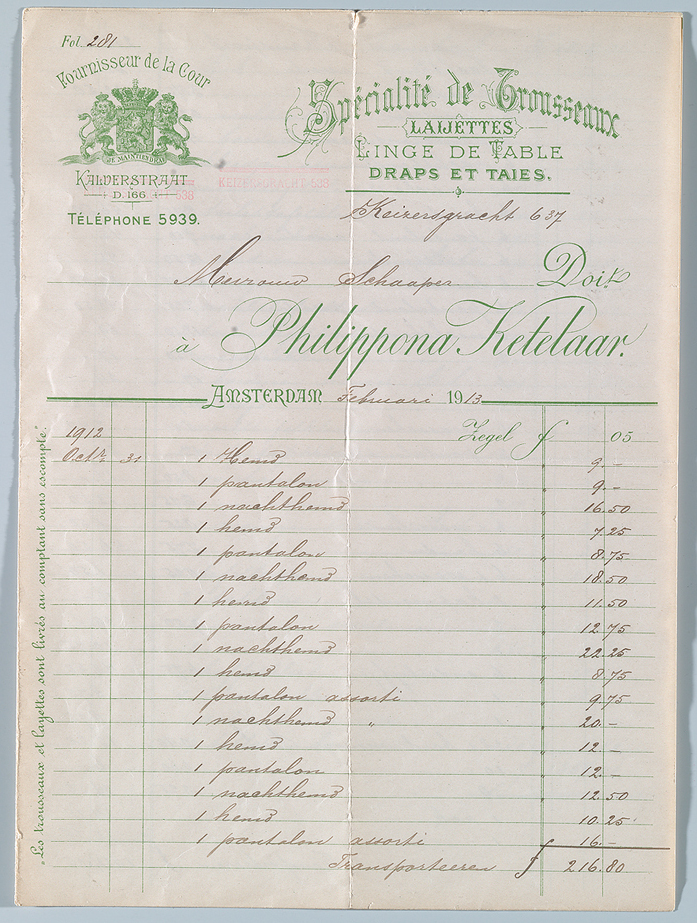 Fol. 281
Fournisseur de la Cour
JE MAINTIENDRAI
KALVERSTRAAT
D. 166.
538
TÉLÉPHONE 5939.
KEIZERSGRACHT 538
Spécialité de Trousseaux
LAIJETTES
LINGE DE TABLE
DRAPS ET TAIES.
Keizersgracht 637
Mevrouw Schaaper Doit
à Philippona Ketelaar.
AMSTERDAM Februari 1913
1912 Zegel f 05
Octr. 31 1 Hemd " 9.-
1 pantalon " 9.-
1 nachthemd " 16.50
1 hemd " 7.25
1 pantalon " 8.75
1 nachthemd " 18.50
1 hemd " 11.50
1 pantalon " 12.75
1 nachthemd " 22.25
1 hemd " 8.75
1 pantalon assorti " 9.75
1 nachthemd " " 20.-
1 hemd " 12.-
1 pantalon " 12.-
1 nachthemd " 12.50
1 hemd " 10.25
1 pantalon assorti 16.-
Transporteeren f 216.80
„Les trousseaux et layettes sont livrés au comptant sans escompte."